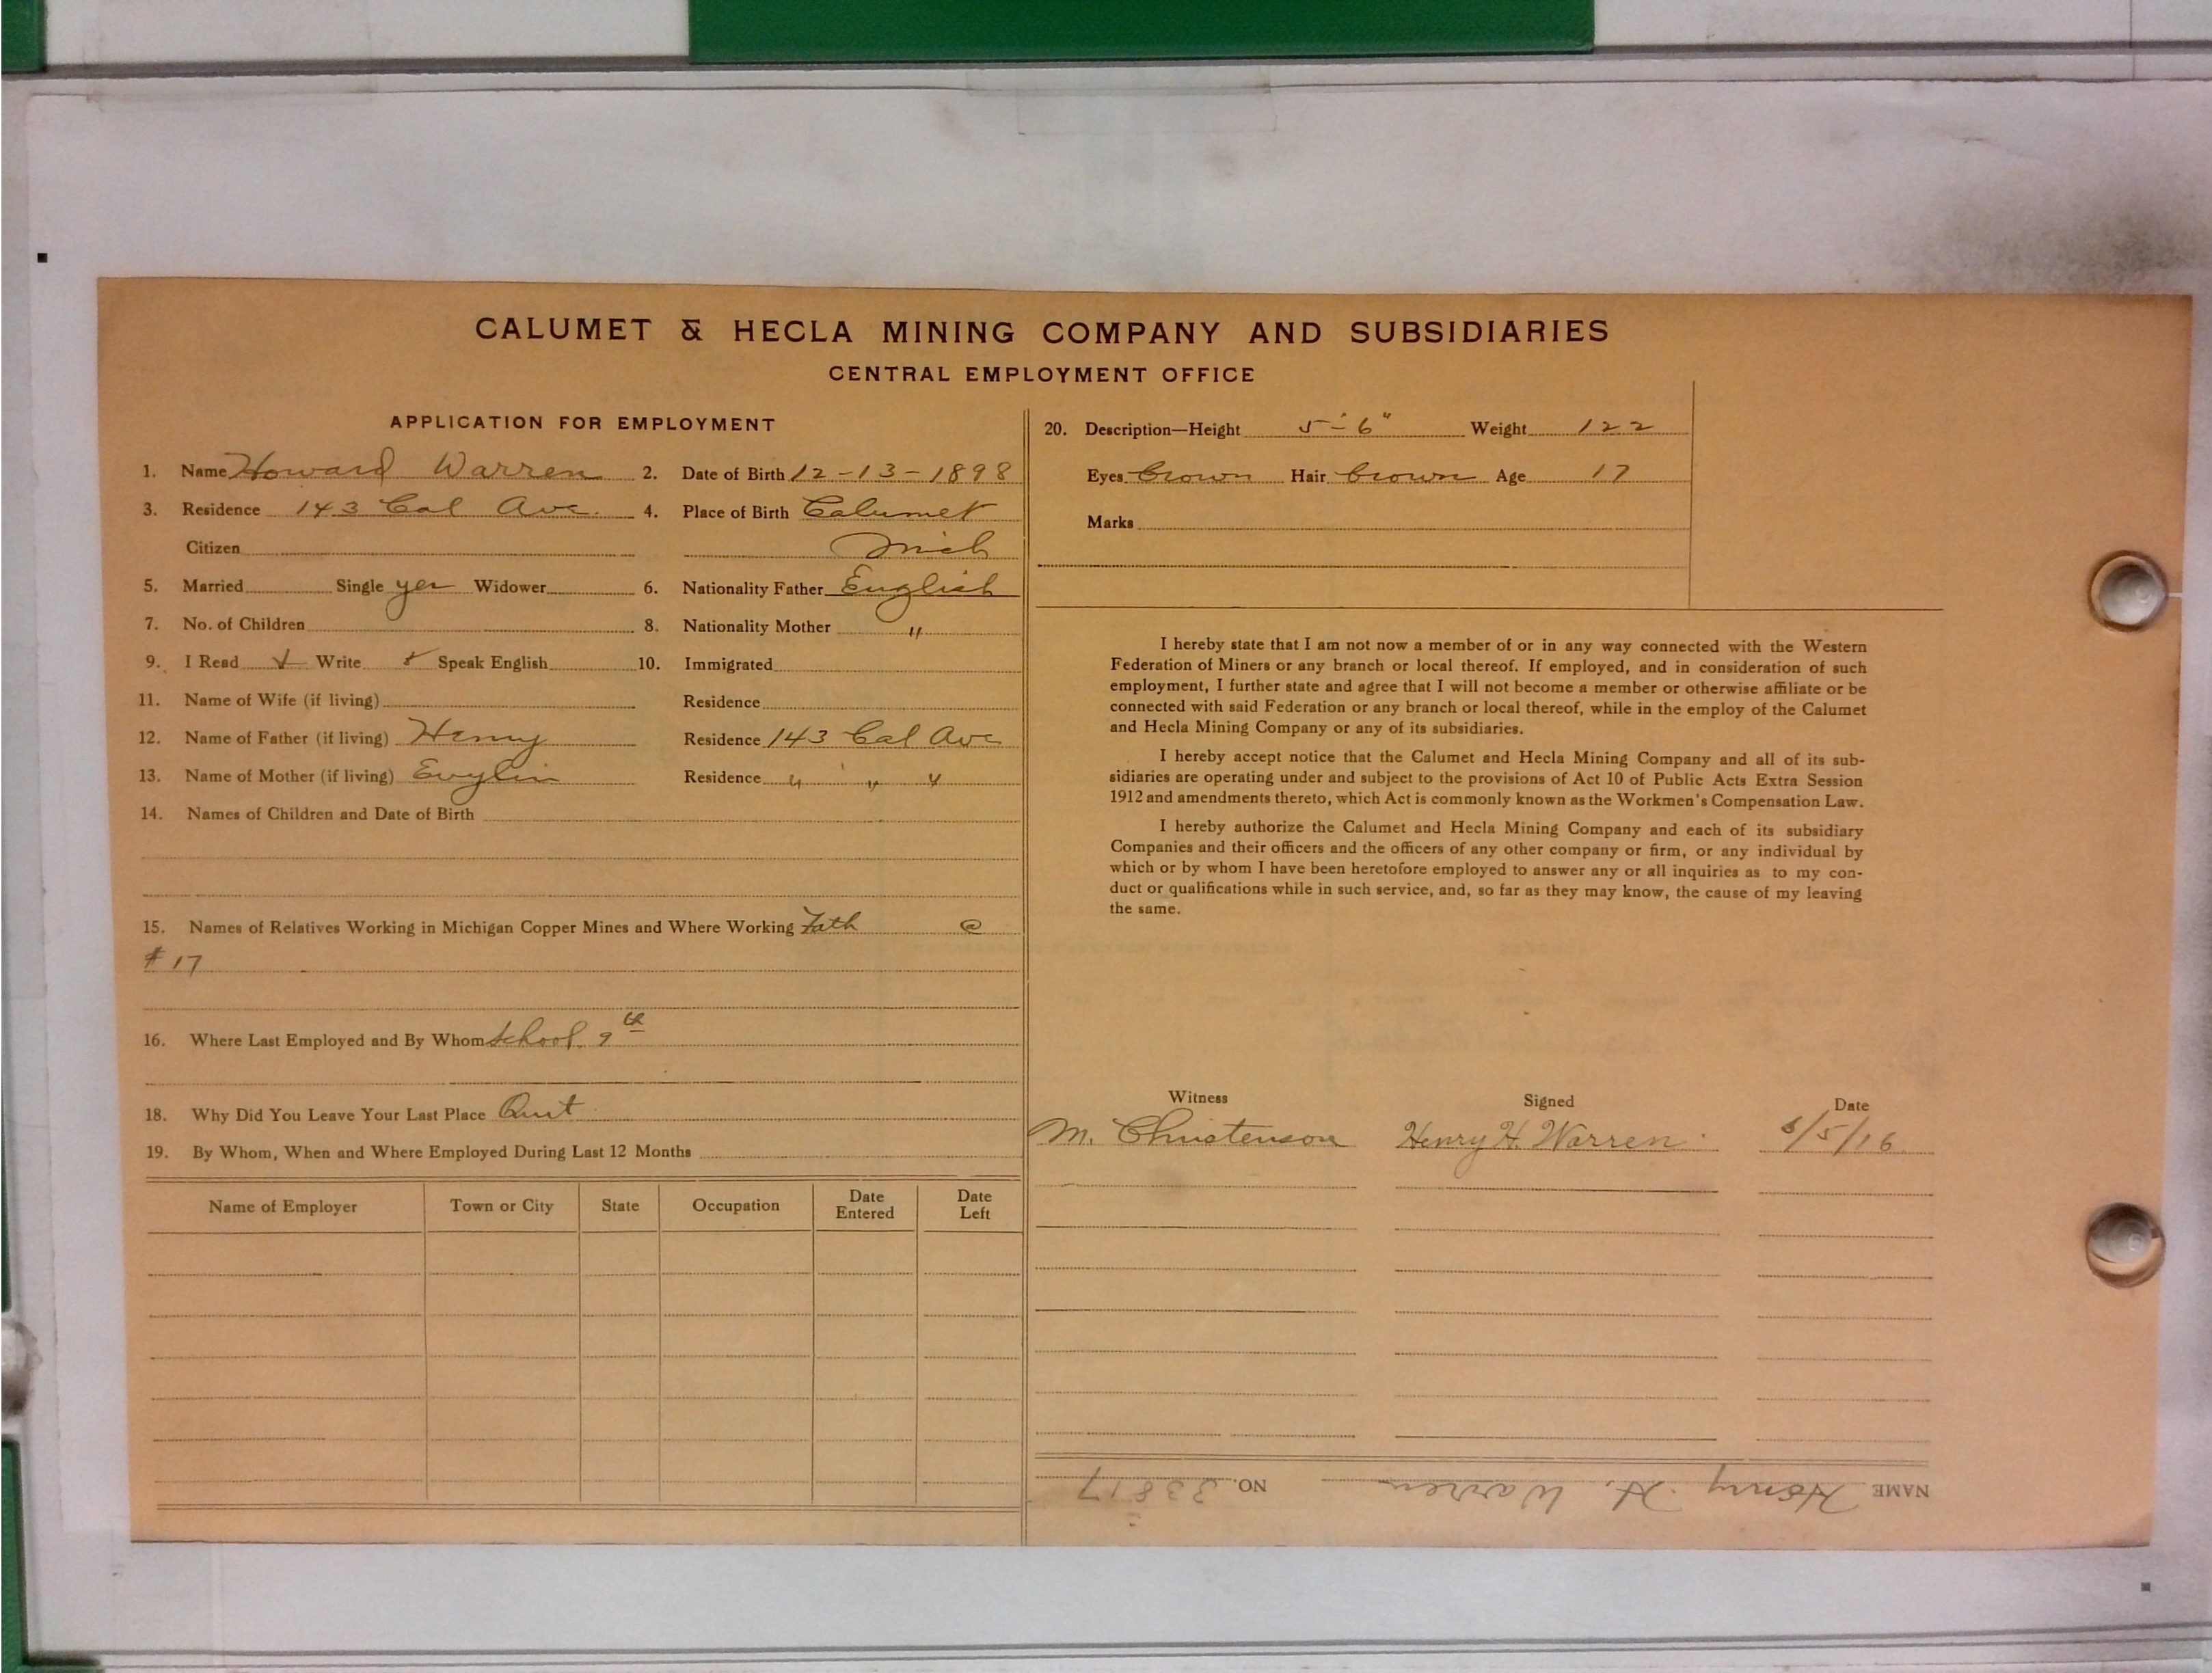 CALUMET & HECLA MINING COMPANY AND SUBSIDIARIES
CENTRAL EMPLOYMENT OFFICE
APPLICATION FOR EMPLOYMENT
1. Name Howard Warren 2. Date of Birth 12-13-1898
3. Residence 143 Cal Ave. 4. Place of Birth Calumet
Citizen Mich
5. Married Single yes Widower 6. Nationality Father English
7. No. of Children 8. Nationality Mother "
9. I Read Write Speak English 10. Immigrated
11. Name of Wife (if living) Residence
12. Name of Father (if living) Henry Residence 143 Cal Ave
13. Name of Mother (if living) Residence " " "
14. Names of Children and Date of Birth
15. Names of Relatives Working in Michigan Copper Mines and Where Working Fath @
# 17
16. Where Last Employed and By Whom School 9th
18. Why Did You Leave Your Last Place Quit
19. By Whom, When and Where Employed During Last 12 Months
Name of Employer Town or City State Occupation Date Entered Date Left
20. Description—Height 5'-6" Weight 122
Eyes brown Hair brown Age 17
Marks
I hereby state that I am not now a member of or in any way connected with the Western
Federation of Miners or any branch or local thereof. If employed, and in consideration of such
employment, I further state and agree that I will not become a member or otherwise affiliate or be
connected with said Federation or any branch or local thereof, while in the employ of the Calumet
and Hecla Mining Company or any of its subsidiaries.
I hereby accept notice that the Calumet and Hecla Mining Company and all of its sub-
sidiaries are operating under and subject to the provisions of Act 10 of Public Acts Extra Session
1912 and amendments thereto, which Act is commonly known as the Workmen's Compensation Law.
I hereby authorize the Calumet and Hecla Mining Company and each of its subsidiary
Companies and their officers and the officers of any other company or firm, or any individual by
which or by whom I have been heretofore employed to answer any or all inquiries as to my con-
duct or qualifications while in such service, and, so far as they may know, the cause of my leaving
the same.
Witness Signed Date
M. Christenson Henry H. Warren 6/5/16
NAME Henry H. Warren NO. 33817